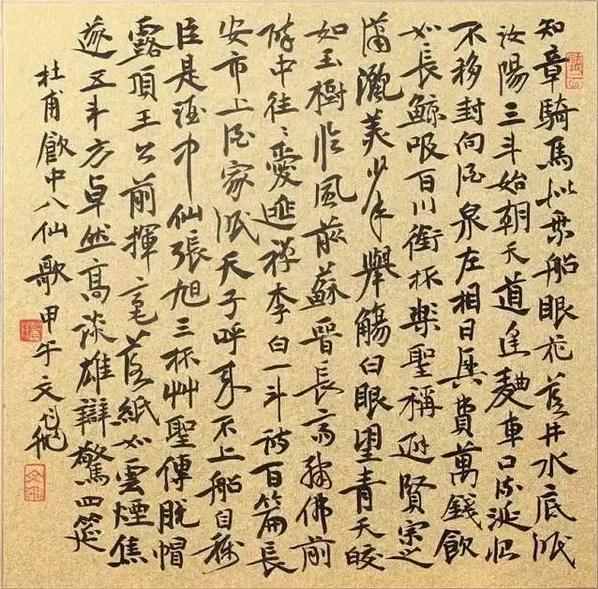 知章騎馬似乘船眼花落井水底眠
汝陽三斗始朝天道逢麴車口流涎恨
不移封向酒泉左相日興費萬錢飲
如長鯨吸百川銜杯樂聖稱避賢宗之
瀟灑美少年舉觴白眼望青天皎
如玉樹臨風前蘇晉長齋繡佛前
醉中往々愛逃禪李白一斗詩百篇長
安市上酒家眠天子呼来不上船自稱
臣是酒中仙張旭三杯艸聖傳脫帽
露頂王公前揮毫落紙如雲煙焦
遂五斗方卓然高談雄辯驚四筵
杜甫飲中八仙歌甲午文飛